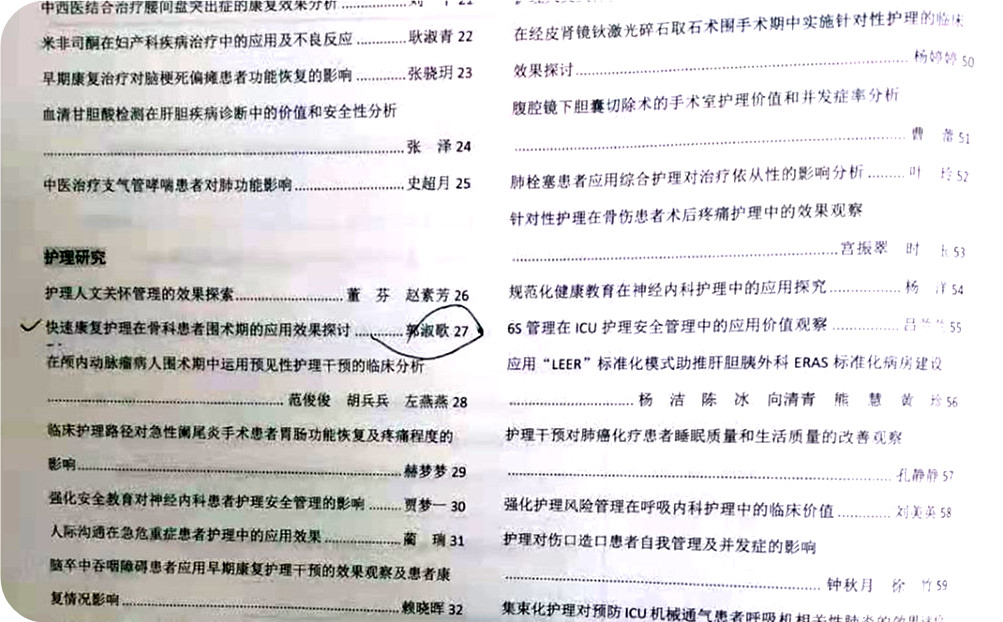 中西医结合治疗腰间盘突出症的康复效果分析
米非司酮在妇产科疾病治疗中的应用及不良反应............耿淑青 22
早期康复治疗对脑梗死偏瘫患者功能恢复的影响............张骁玥 23
血清甘胆酸检测在肝胆疾病诊断中的价值和安全性分析
............张 泽 24
中医治疗支气管哮喘患者对肺功能影响............史超月 25
护理研究
护理人文关怀管理的效果探索............董 芬 赵素芳 26
快速康复护理在骨科患者围术期的应用效果探讨............郭淑歌 27
在颅内动脉瘤病人围术期中运用预见性护理干预的临床分析
............范俊俊 胡兵兵 左燕燕 28
临床护理路径对急性阑尾炎手术患者胃肠功能恢复及疼痛程度的
影响............赫梦梦 29
强化安全教育对神经内科患者护理安全管理的影响.........贾梦一 30
人际沟通在急危重症患者护理中的应用效果............蔺 瑞 31
脑卒中吞咽障碍患者应用早期康复护理干预的效果观察及患者康
复情况影响............赖晓晖 32
在经皮肾镜钬激光碎石取石术围手术期中实施针对性护理的临床
效果探讨............杨婷婷 50
腹腔镜下胆囊切除术的手术室护理价值和并发症率分析
............曹 51
肺栓塞患者应用综合护理对治疗依从性的影响分析.........叶 玲 52
针对性护理在骨伤患者术后疼痛护理中的效果观察
............宫振翠 时 53
规范化健康教育在神经内科护理中的应用探究............杨 洋 54
6S 管理在 ICU 护理安全管理中的应用价值观察............吕 55
应用“LEER”标准化模式助推肝胆胰外科 ERAS 标准化病房建设
............杨 洁 陈 冰 向清青 熊 慧 黄 珍 56
护理干预对肺癌化疗患者睡眠质量和生活质量的改善观察
............孔静静 57
强化护理风险管理在呼吸内科护理中的临床价值............刘美英 58
护理对伤口造口患者自我管理及并发症的影响
............钟秋月 徐 竹 59
集束化护理对预防 ICU 机械通气患者呼吸机相关性肺炎的效果